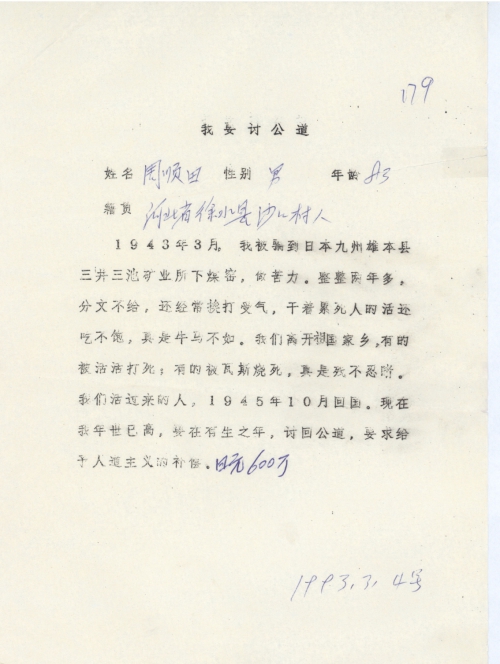 179
我要讨公道
姓名 周顺田 性别 男 年龄 83
籍贯 河北省徐水县沙口村人
1943年3月，我被骗到日本九州雄本县
三井三池矿业所下煤窑，做苦力。整整两年多，
分文不给，还经常挨打受气，干着累死人的活还
吃不饱，真是牛马不如。我们离开祖国家乡，有的
被活活打死；有的被瓦斯烧死，真是残不忍睹。
我们活过来的人，1945年10月回国。现在
我年世已高，要在有生之年，讨回公道，要求给
于人道主义的补偿。日元600万
1993.3.4号